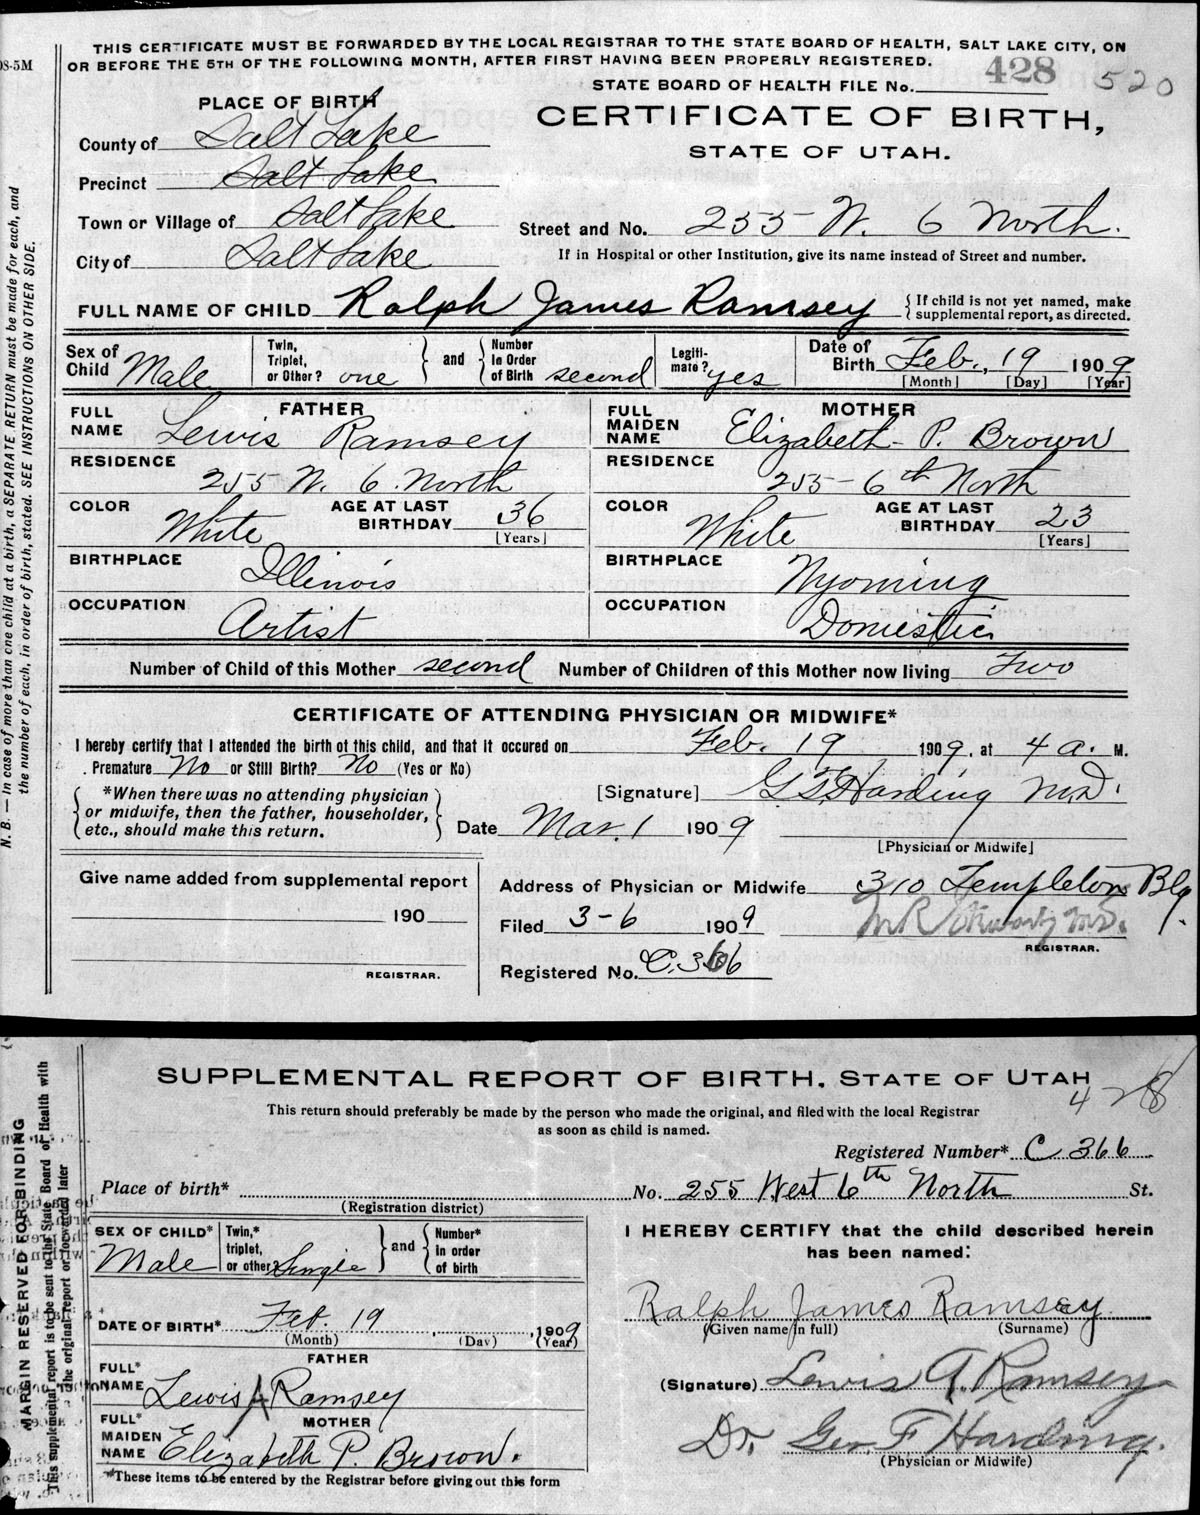 08-5M
THIS CERTIFICATE MUST BE FORWARDED BY THE LOCAL REGISTRAR TO THE STATE BOARD OF HEALTH, SALT LAKE CITY, ON
OR BEFORE THE 5TH OF THE FOLLOWING MONTH, AFTER FIRST HAVING BEEN PROPERLY REGISTERED.
STATE BOARD OF HEALTH FILE No. 428 520
PLACE OF BIRTH
CERTIFICATE OF BIRTH,
STATE OF UTAH.
County of Salt Lake
Precinct Salt Lake
Town or Village of Salt Lake
City of Salt Lake
Street and No. 255 W. 6 North.
If in Hospital or other Institution, give its name instead of Street and number.
FULL NAME OF CHILD Ralph James Ramsey { If child is not yet named, make
supplemental report, as directed.
Sex of Child Male
Twin, Triplet, or Other? one } and { Number In Order of Birth second
Legiti-mate? yes
Date of Birth Feb., 19 1909
[Month] [Day] [Year]
FATHER
FULL NAME Lewis Ramsey
RESIDENCE 255 W. 6. North
COLOR White AGE AT LAST BIRTHDAY 36
[Years]
BIRTHPLACE Illinois
OCCUPATION Artist
MOTHER
FULL MAIDEN NAME Elizabeth P. Brown
RESIDENCE 255 - 6th North
COLOR White AGE AT LAST BIRTHDAY 23
[Years]
BIRTHPLACE Wyoming
OCCUPATION Domestic
Number of Child of this Mother second Number of Children of this Mother now living Two
CERTIFICATE OF ATTENDING PHYSICIAN OR MIDWIFE*
I hereby certify that I attended the birth of this child, and that it occured on Feb. 19 1909, at 4 a. M.
Premature No or Still Birth? No (Yes or No)
{ *When there was no attending physician
or midwife, then the father, householder,
etc., should make this return. }
[Signature] G. F. Harding M.D.
Date Mar. 1 1909
[Physician or Midwife]
Give name added from supplemental report
190
REGISTRAR.
Address of Physician or Midwife 310 Templeton Blg.
Filed 3-6 1909
REGISTRAR.
Registered No. C.366
N. B. — In case of more than one child at a birth, a SEPARATE RETURN must be made for each, and
the number of each, in order of birth, stated. SEE INSTRUCTIONS ON OTHER SIDE.
SUPPLEMENTAL REPORT OF BIRTH, STATE OF UTAH
428
This return should preferably be made by the person who made the original, and filed with the local Registrar
as soon as child is named.
Registered Number* C 366
Place of birth* No. 255 West 6th North St.
(Registration district)
SEX OF CHILD* Male
Twin,* triplet, or other Single } and { Number* in order of birth
DATE OF BIRTH* Feb. 19, 1909
(Month) (Day) (Year)
FATHER
FULL* NAME Lewis A Ramsey
MOTHER
FULL* MAIDEN NAME Elizabeth P. Brown.
*These items to be entered by the Registrar before giving out this form
I HEREBY CERTIFY that the child described herein
has been named:
Ralph James Ramsey
(Given name in full) (Surname)
(Signature) Lewis A. Ramsey
Dr. Geo F Harding.
(Physician or Midwife)
MARGIN RESERVED FOR BINDING
This supplemental report is to be sent to the State Board of Health with
the original report or forwarded later